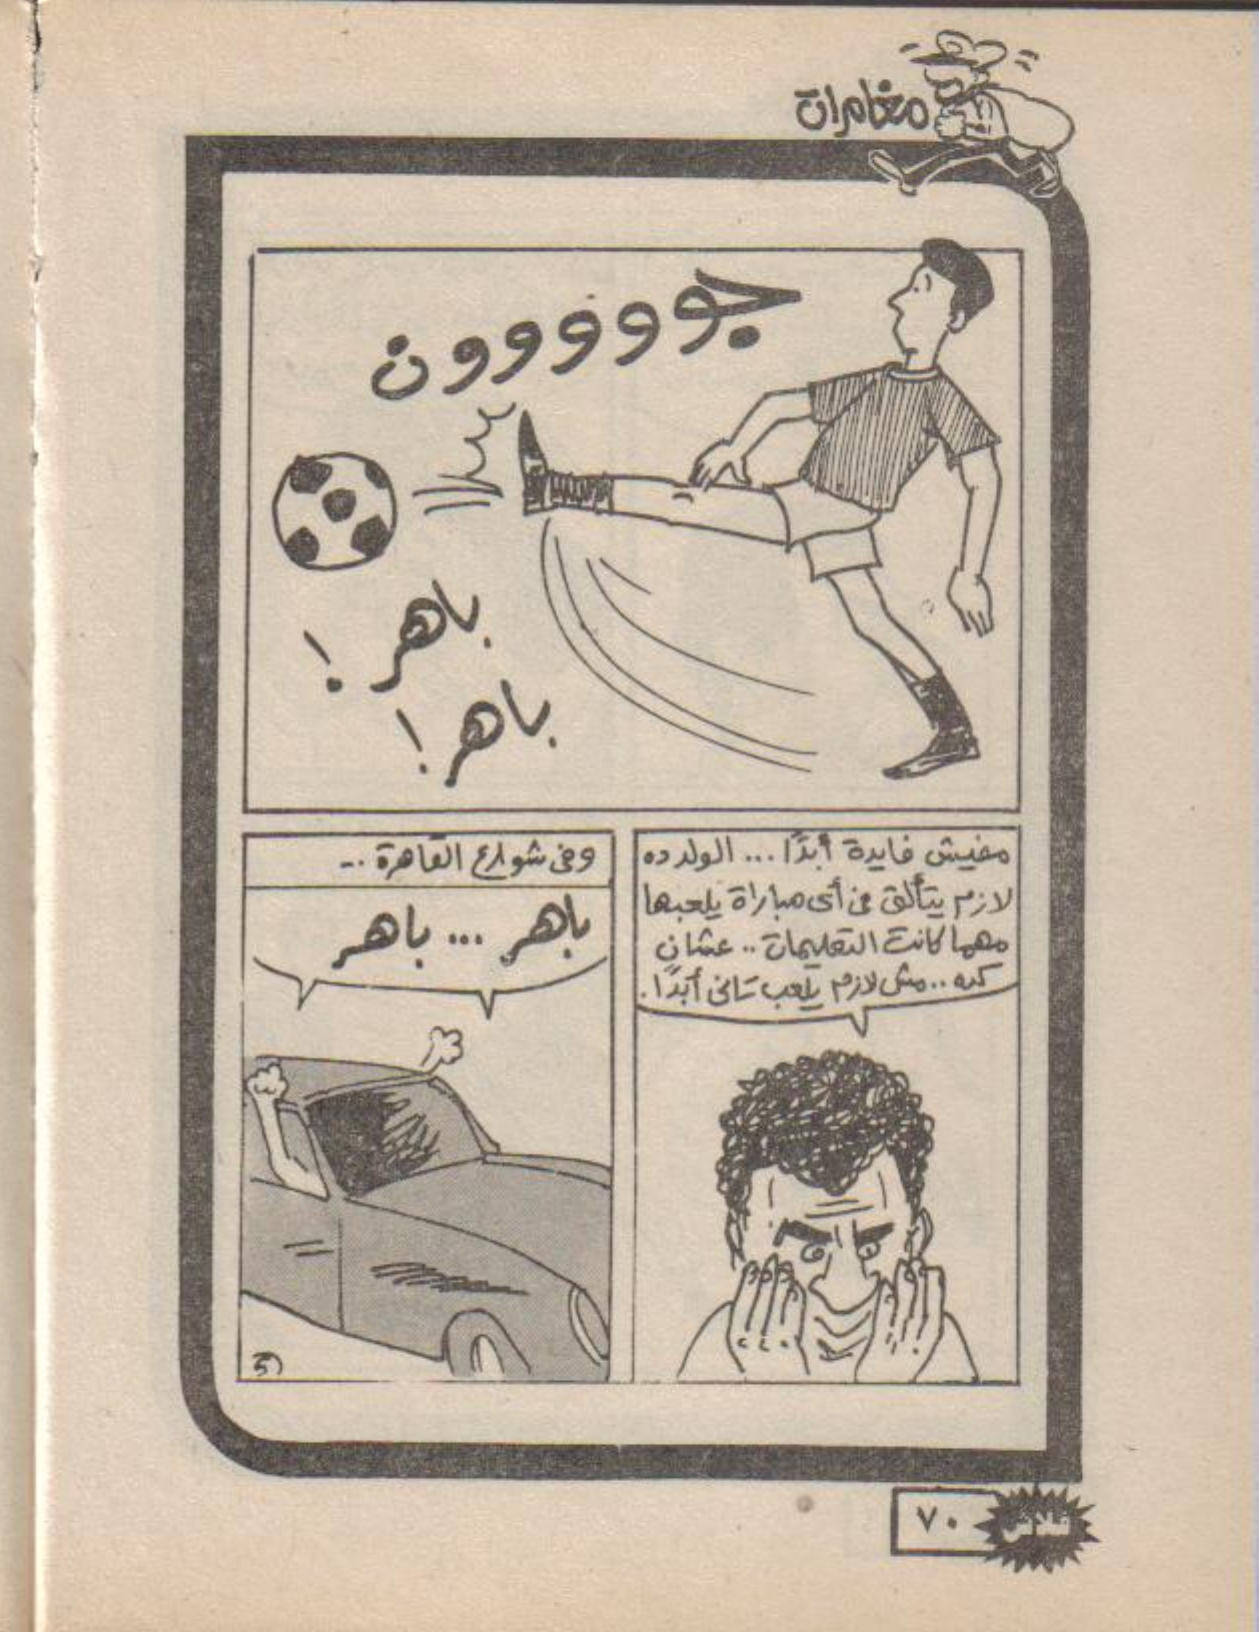 مغامرات
جوووووون
باهر !
باهر !
مفيش فايدة أبدًا ... الولد ده
لازم يتألق فى أى مباراة يلعبها
مهما كانت التعليمات .. عشان
كده .. مش لازم يلعب تانى أبدًا .
وفى شوارع القاهرة ..
باهر ... باهر
٧٠
فلاش